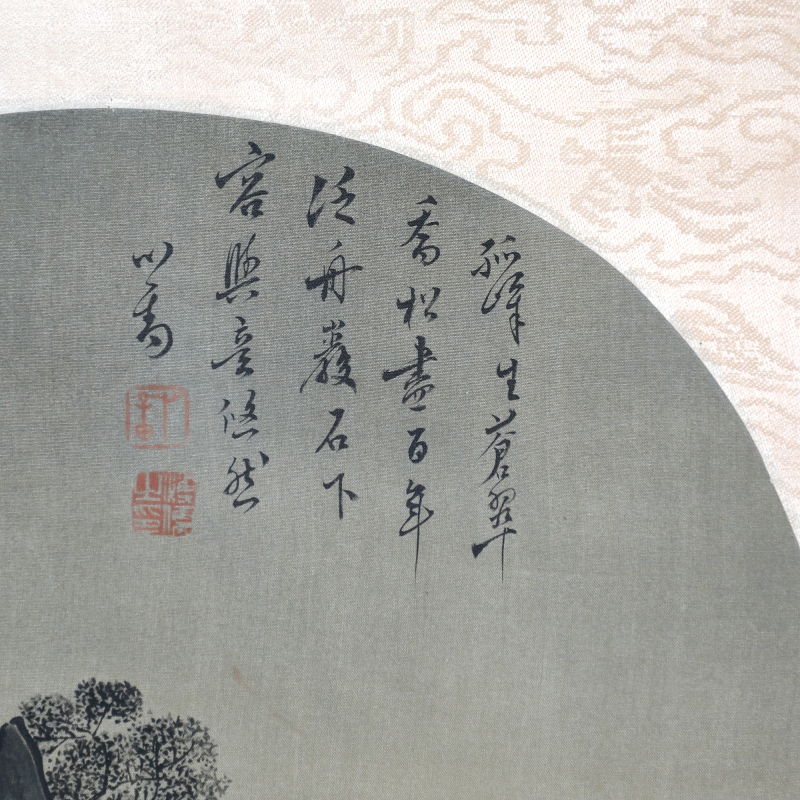 孤峰生蒼翠
喬松盡百年
泛舟巖石下
容與意悠然
心畬